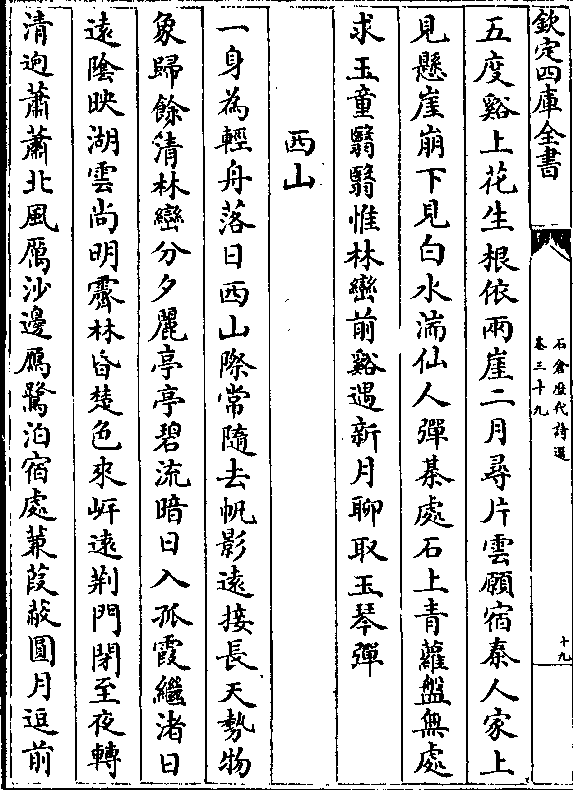 欽定四庫全書
石倉歷代詩選
卷三十九
十九
五度谿上花生根依兩崖二月尋片雲願宿秦人家上
見懸崖崩下見白水湍仙人彈棊處石上青蘿盤無處
求玉童翳翳惟林巒前谿遇新月聊取玉琴彈
西山
一身為輕舟落日西山際常隨去帆影遠接長天勢物
象歸餘清林巒分夕麗亭亭碧流暗日入孤霞繼渚日
遠陰映湖雲尚明霽林昏楚色來岸遠荆門閉至夜轉
清逈蕭蕭北風厲沙邊鴈鷺泊宿處蒹葭蔽圓月逗前